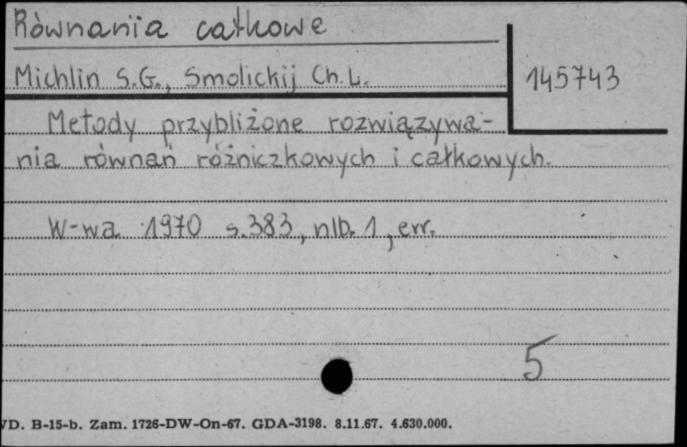 Równania całkowe
Michlin S.G., Smolickij Ch.L.
145743
Metody przybliżone rozwiązywa-
nia równań różniczkowych i całkowych.
W-wa 1970 s.383, nlb. 1, err.
5
VD. B-15-b. Zam. 1726-DW-On-67. GDA-3198. 8.11.67. 4.630.000.